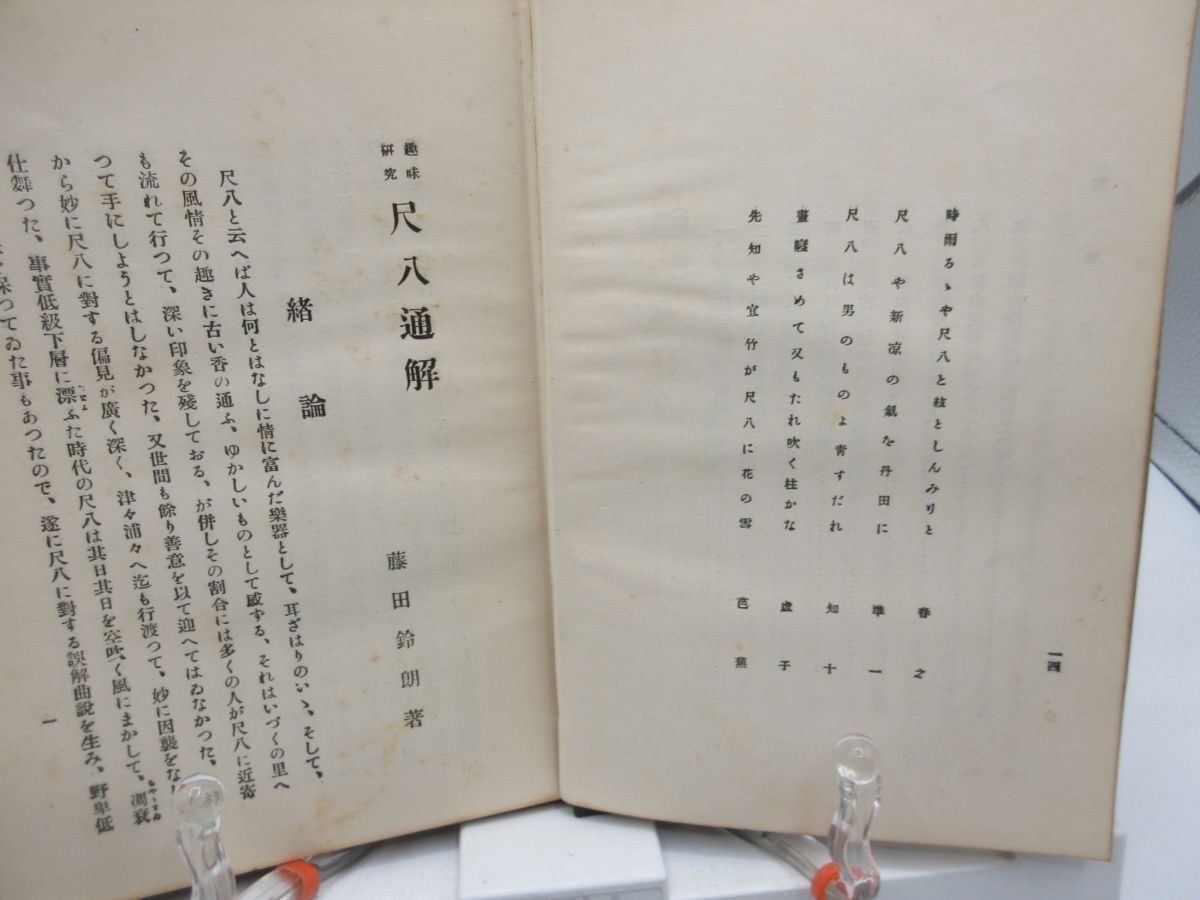 時雨るゝや尺八と枝としんみりと 春之
尺八や新凉の氣を丹田に 準一
尺八は男のものよ青すだれ 知十
晝寢さめて又もたれ吹く柱かな 虚子
先知や宜竹が尺八に花の雪 芭蕉
一四
趣味
研究
尺八通解
藤田鈴朗著
緒論
尺八と云へば人は何とはなしに情に富んだ樂器として、耳ざはりのいゝ、そして、
その風情その趣きに古い香の通ふ、ゆかしいものとして感ずる、それはいづくの里へ
も流れて行つて、深い印象を殘しておる、が併しその割合には多くの人が尺八に近寄
つて手にしようとはしなかつた、又世間も餘り善意を以て迎へてはゐなかつた、
から妙に尺八に對する偏見が廣く深く、津々浦々へ迄も行渡つて、妙に因襲をな
仕舞つた、事實低級下層に漂ふた時代の尺八は其日其日を空吹く風にまかして、凋衰
保つてゐた事もあつたので、遂に尺八に對する誤解曲說を生み、野卑低
一